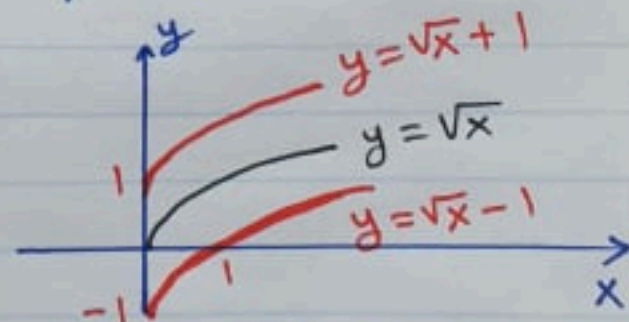 y
y = √x + 1
y = √x
1
y = √x - 1
1
-1
x